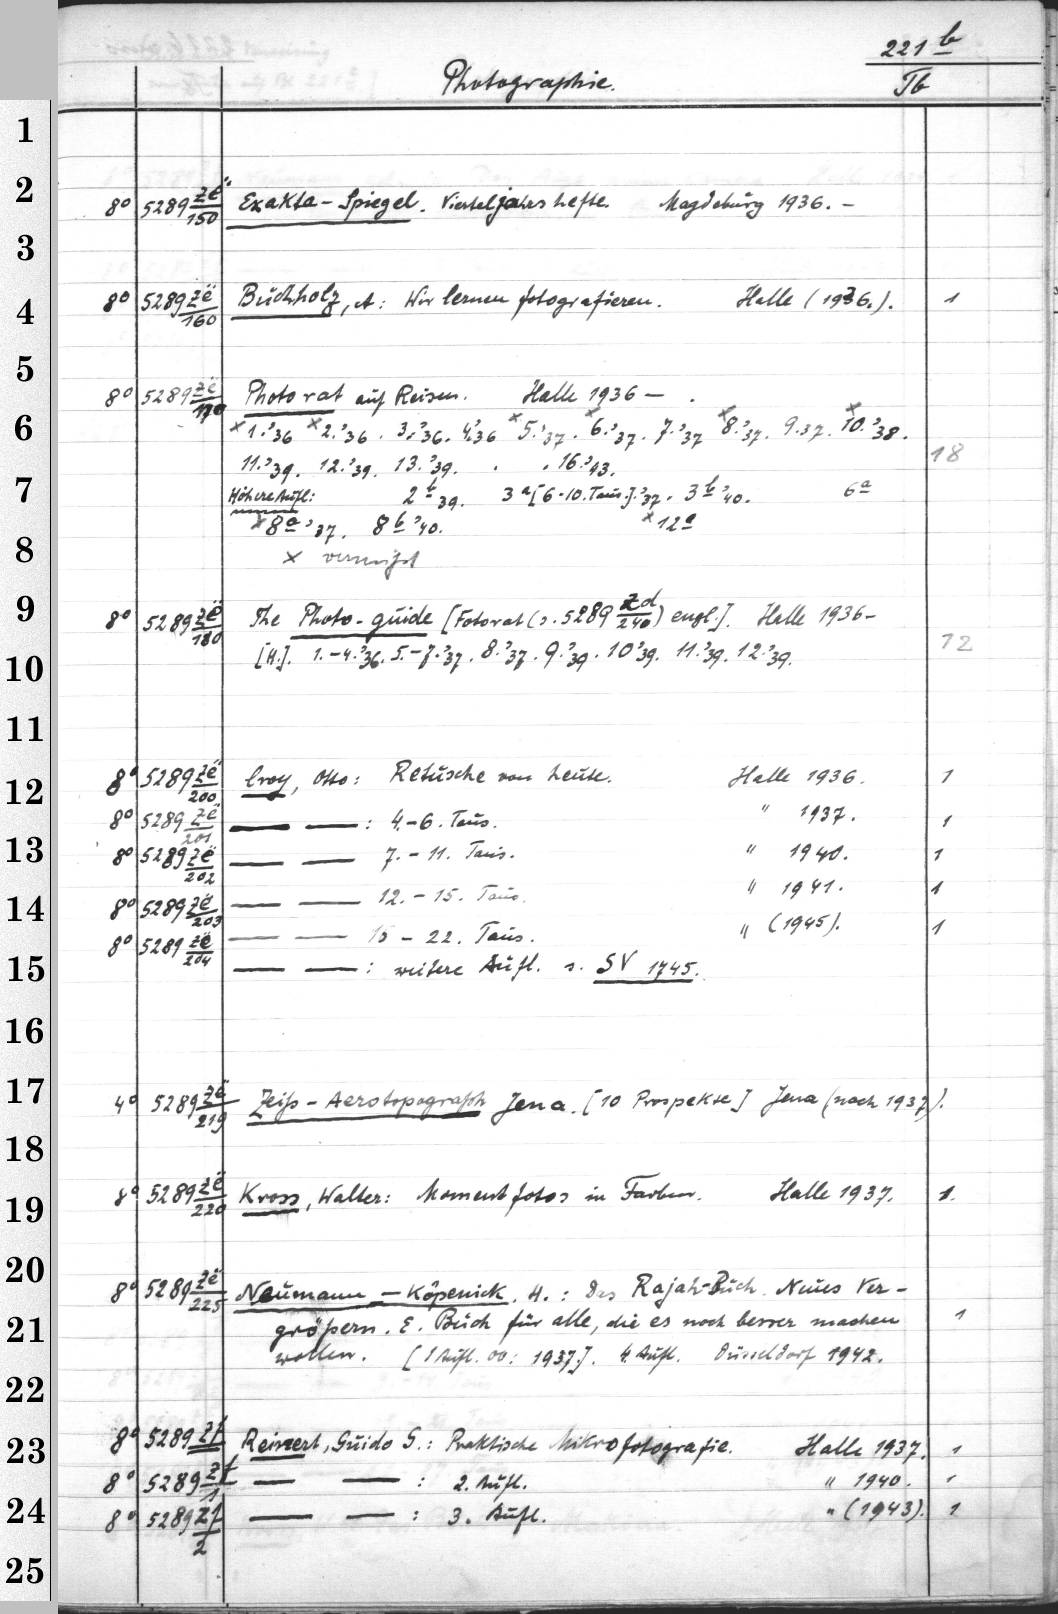 221 b
Photographie. Tb
1
2
8° 5289 Zë/150 Exakta - Spiegel. Vierteljahrshefte. Magdebürg 1936. -
3
4
8° 5289 Zë/160 Büchholz, A: Wir lernen fotografieren. Halle (1936.). 1
5
8° 5289 Zë/170 Photorat auf Reisen. Halle 1936 - .
6
×1.'36 ×2.'36. 3.'36. 4.'36 ×5.'37. ×6.'37. 7.'37 ×8.'37. 9.37. ×10.'38.
11.'39. 12.'39. 13.'39. . . 16.'43. 18
7
Höhere Aufl: 2 b 39. 3 a [6-10. Taüs.].'37. 3 b '40. 6 a
×8 a '37. 8 b '40. ×12 a
8
× vermisst
9
8° 5289 Zë/180 The Photo-guide [Fotorat (s. 5289 Zd/240) engl.]. Halle 1936-
10
[H.]. 1.-4.'36. 5.-7.'37. 8.'37. 9.'39. 10'39. 11.'39. 12.'39. 12
11
12
8° 5289 Zë/200 Croy, Otto: Retüsche von heüte. Halle 1936. 1
8° 5289 Zë/201 — — : 4.-6. Taüs. " 1937. 1
13
8° 5289 Zë/202 — — 7.-11. Taüs. " 1940. 1
14
8° 5289 Zë/203 — — 12.-15. Taüs. " 1941. 1
8° 5289 Zë/204 — — 15 - 22. Taüs. " (1945). 1
15
— — : weitere Aüfl. s. SV 1745.
16
17
4° 5289 Zë/219 Zeiß-Aerotopograph Jena. [10 Prospekte] Jena (nach 1937).
18
19
8° 5289 Zë/220 Kross, Walter: Momentfotos in Farben. Halle 1937. 1.
20
8° 5289 Zë/225 Neümann - Köpenick, H.: Das Rajah-Büch. Neües Ver-
21
größern. E. Büch für alle, die es noch besser machen 1
wollen. [1 Aüfl. oo: 1937.]. 4. Aüfl. Düsseldorf 1942.
22
23
8° 5289 Zf Reinert, Güido G.: Praktische Mikrofotografie. Halle 1937. 1
8° 5289 Zf/1 — — : 2. Aüfl. " 1940. 1
24
8° 5289 Zf/2 — — : 3. Aüfl. " (1943). 1
25